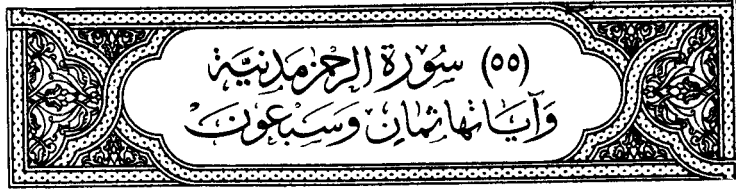 (٥٥) سُوْرَةُ الرَّحْمٰنِ مَدَنِيَّة
وَآيَاتهَا ثَمَانٍ وَسَبْعُونَ